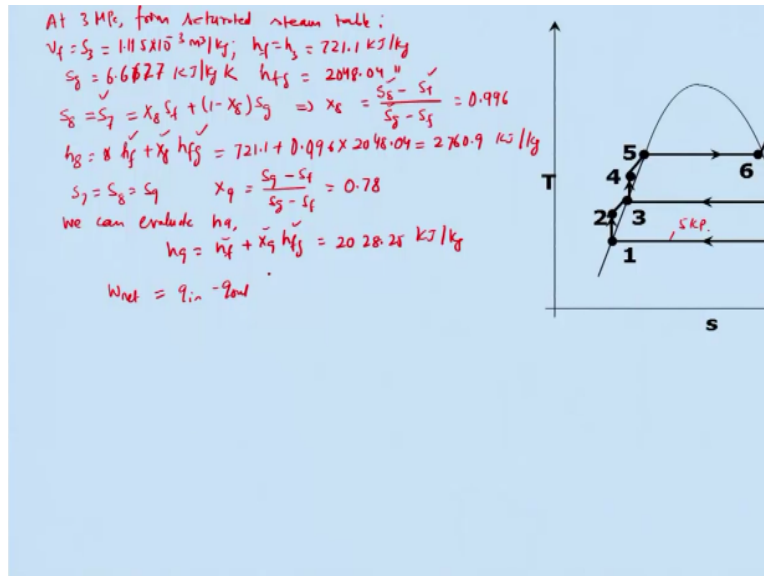 At 3 MPa, from saturated steam table:
vf = s3 = 1.115x10⁻³ m³/kg; hf = h3 = 721.1 KJ/kg
sg = 6.6627 KJ/kg K hfg = 2048.04 "
s8 = s7 = x8 sf + (1-x8) sg ⇒ x8 = (s8 - sf)/(sg - sf) = 0.996
h8 = hf + x8 hfg = 721.1 + 0.996 x 2048.04 = 2760.9 KJ/kg
s7 = s8 = s9 x9 = (s9 - sf)/(sg - sf) = 0.78
we can evaluate h9,
h9 = hf + x9 hfg = 2028.25 KJ/kg
Wnet = qin - qout
T
5
6
4
2
3
5KP.
1
s